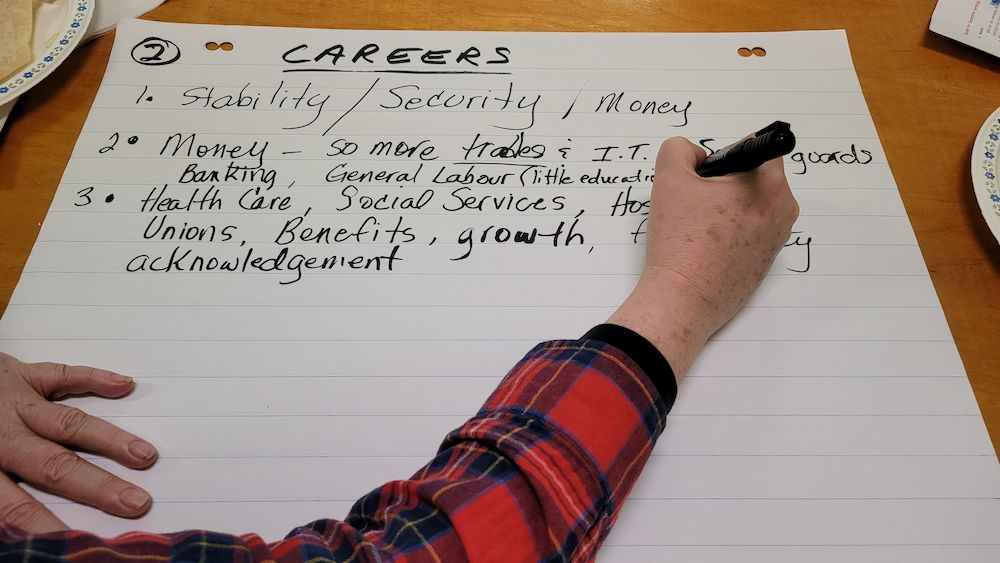 ② CAREERS
1. Stability / Security / Money
2. Money - so more trades & I.T. guards
Banking, General Labour (little
3. Health Care, Social Services,
Unions, Benefits, growth,
acknowledgement